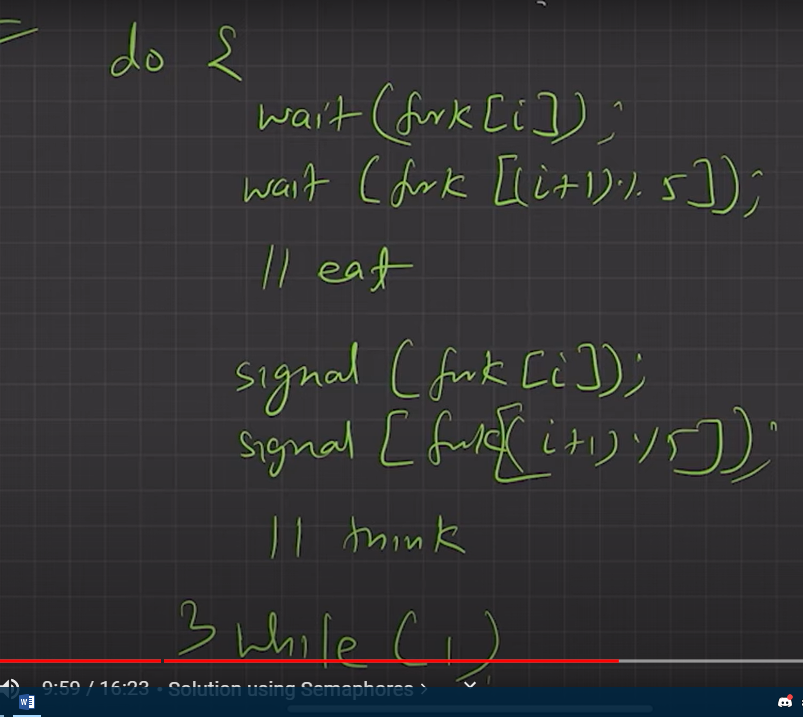 do {
wait (fork [i]);
wait (fork [(i+1) % 5]);
// eat
signal (fork [i]);
signal [ fork[(i+1) % 5]);
// think
} while (1)
9:59 / 16:23 • Solution using Semaphores >